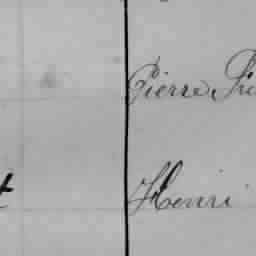 Pierre
Henri